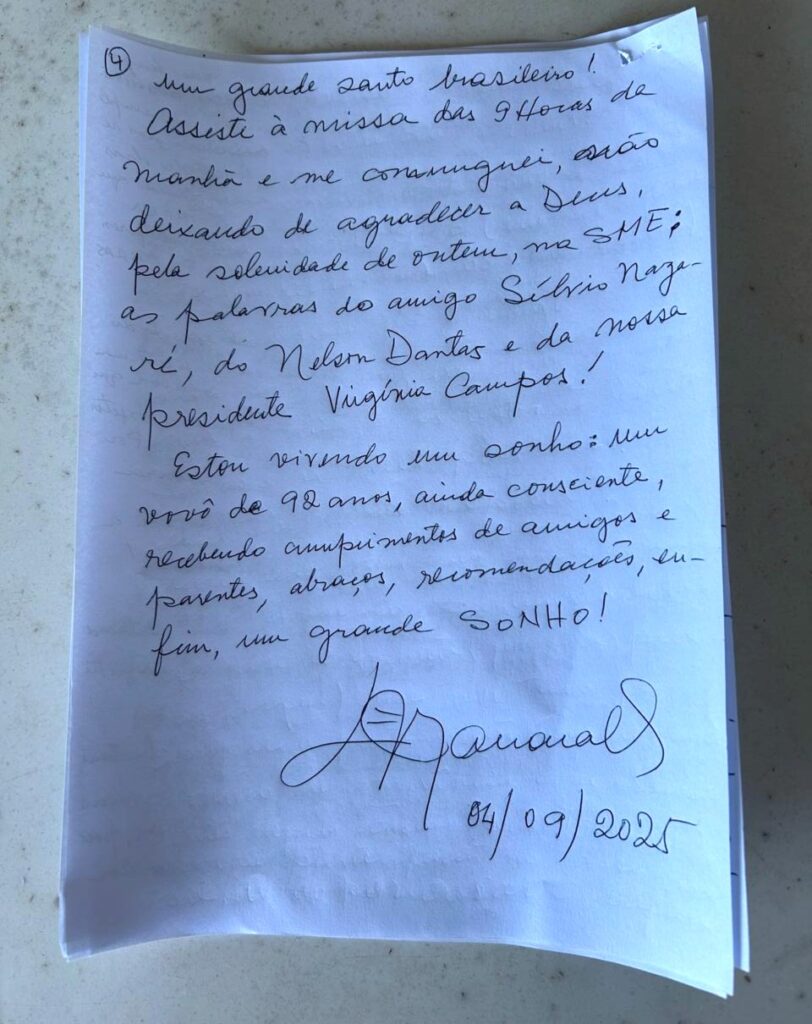 4
um grande santo brasileiro!
Assiste à missa das 9 Horas da
manhã e me comunguei, não
deixando de agradecer a Deus,
pela solenidade de ontem, na SME;
as palavras do amigo Sílvio Naza-
ré, do Nelson Dantas e da nossa
presidente Virgínia Campos!
Estou vivendo um sonho: um
vovô de 92 anos, ainda consciente,
recebendo cumprimentos de amigos e
parentes, abraços, recomendações, en-
fim, um grande SONHO!
04/09/2025